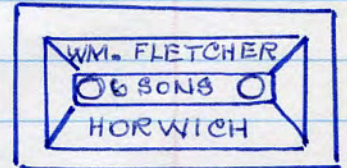 WM. FLETCHER
& SONS
HORWICH